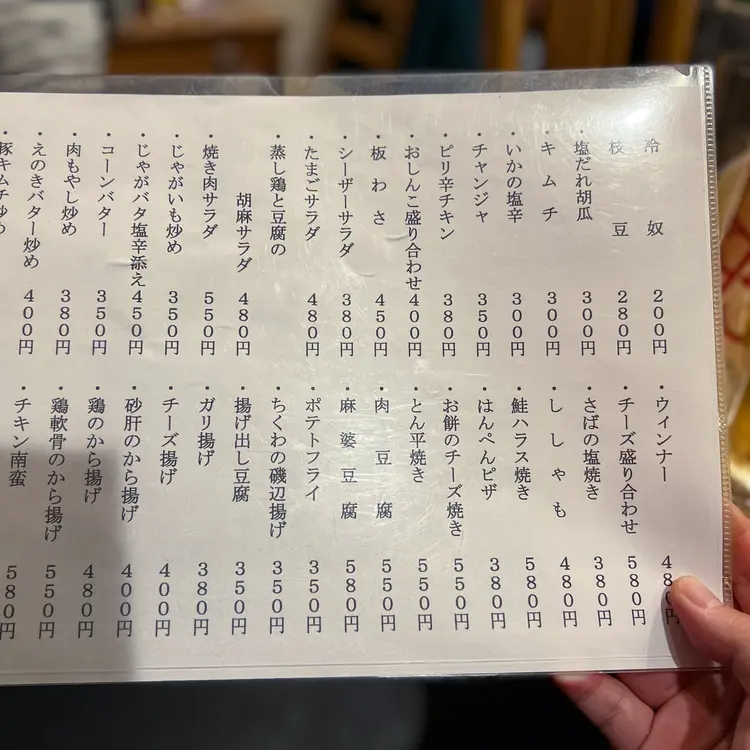 冷奴 200円
枝豆 280円
・塩だれ胡瓜 300円
・キムチ 300円
・いかの塩辛 300円
・チャンジャ 350円
・ピリ辛チキン 380円
・おしんこ盛り合わせ 400円
・板わさ 450円
・シーザーサラダ 380円
・たまごサラダ 480円
・蒸し鶏と豆腐の
胡麻サラダ 480円
・焼き肉サラダ 550円
・じゃがいも炒め 350円
・じゃがバタ塩辛添え 450円
・コーンバター 350円
・肉もやし炒め 380円
・えのきバター炒め 400円
・豚キムチ炒め
・ウィンナー 480円
・チーズ盛り合わせ 580円
・さばの塩焼き 380円
・ししゃも 480円
・鮭ハラス焼き 580円
・はんぺんピザ 380円
・お餅のチーズ焼き 550円
・とん平焼き 550円
・肉豆腐 550円
・麻婆豆腐 580円
・ポテトフライ 350円
・ちくわの磯辺揚げ 350円
・揚げ出し豆腐 350円
・ガリ揚げ 380円
・チーズ揚げ 400円
・砂肝のから揚げ 400円
・鶏のから揚げ 480円
・鶏軟骨のから揚げ 550円
・チキン南蛮 580円